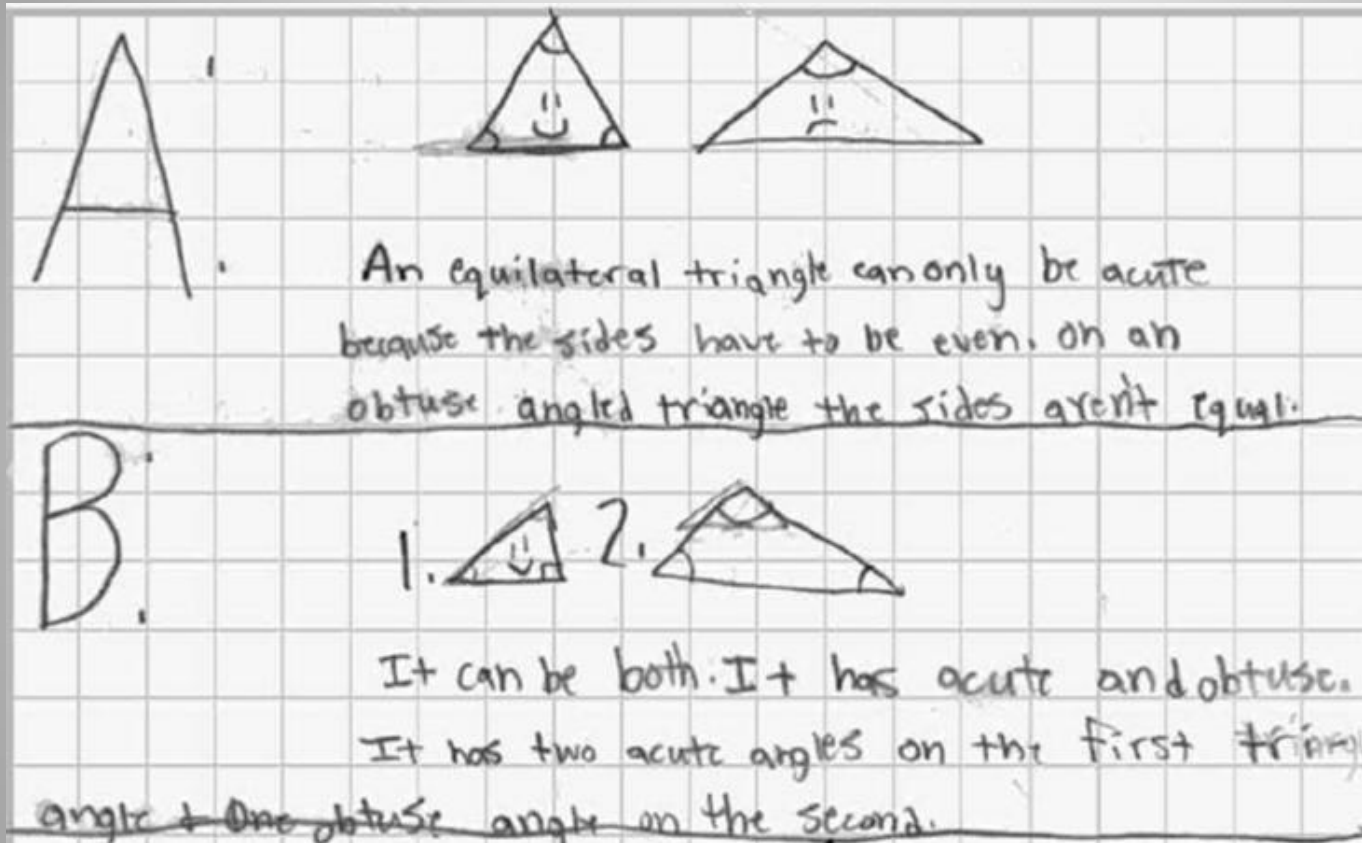 A:
An equilateral triangle can only be acute
because the sides have to be even. On an
obtuse angled triangle the sides aren't equal.
B:
1. 2.
It can be both. It has acute and obtuse.
It has two acute angles on the first
angle + One obtuse angle on the second.